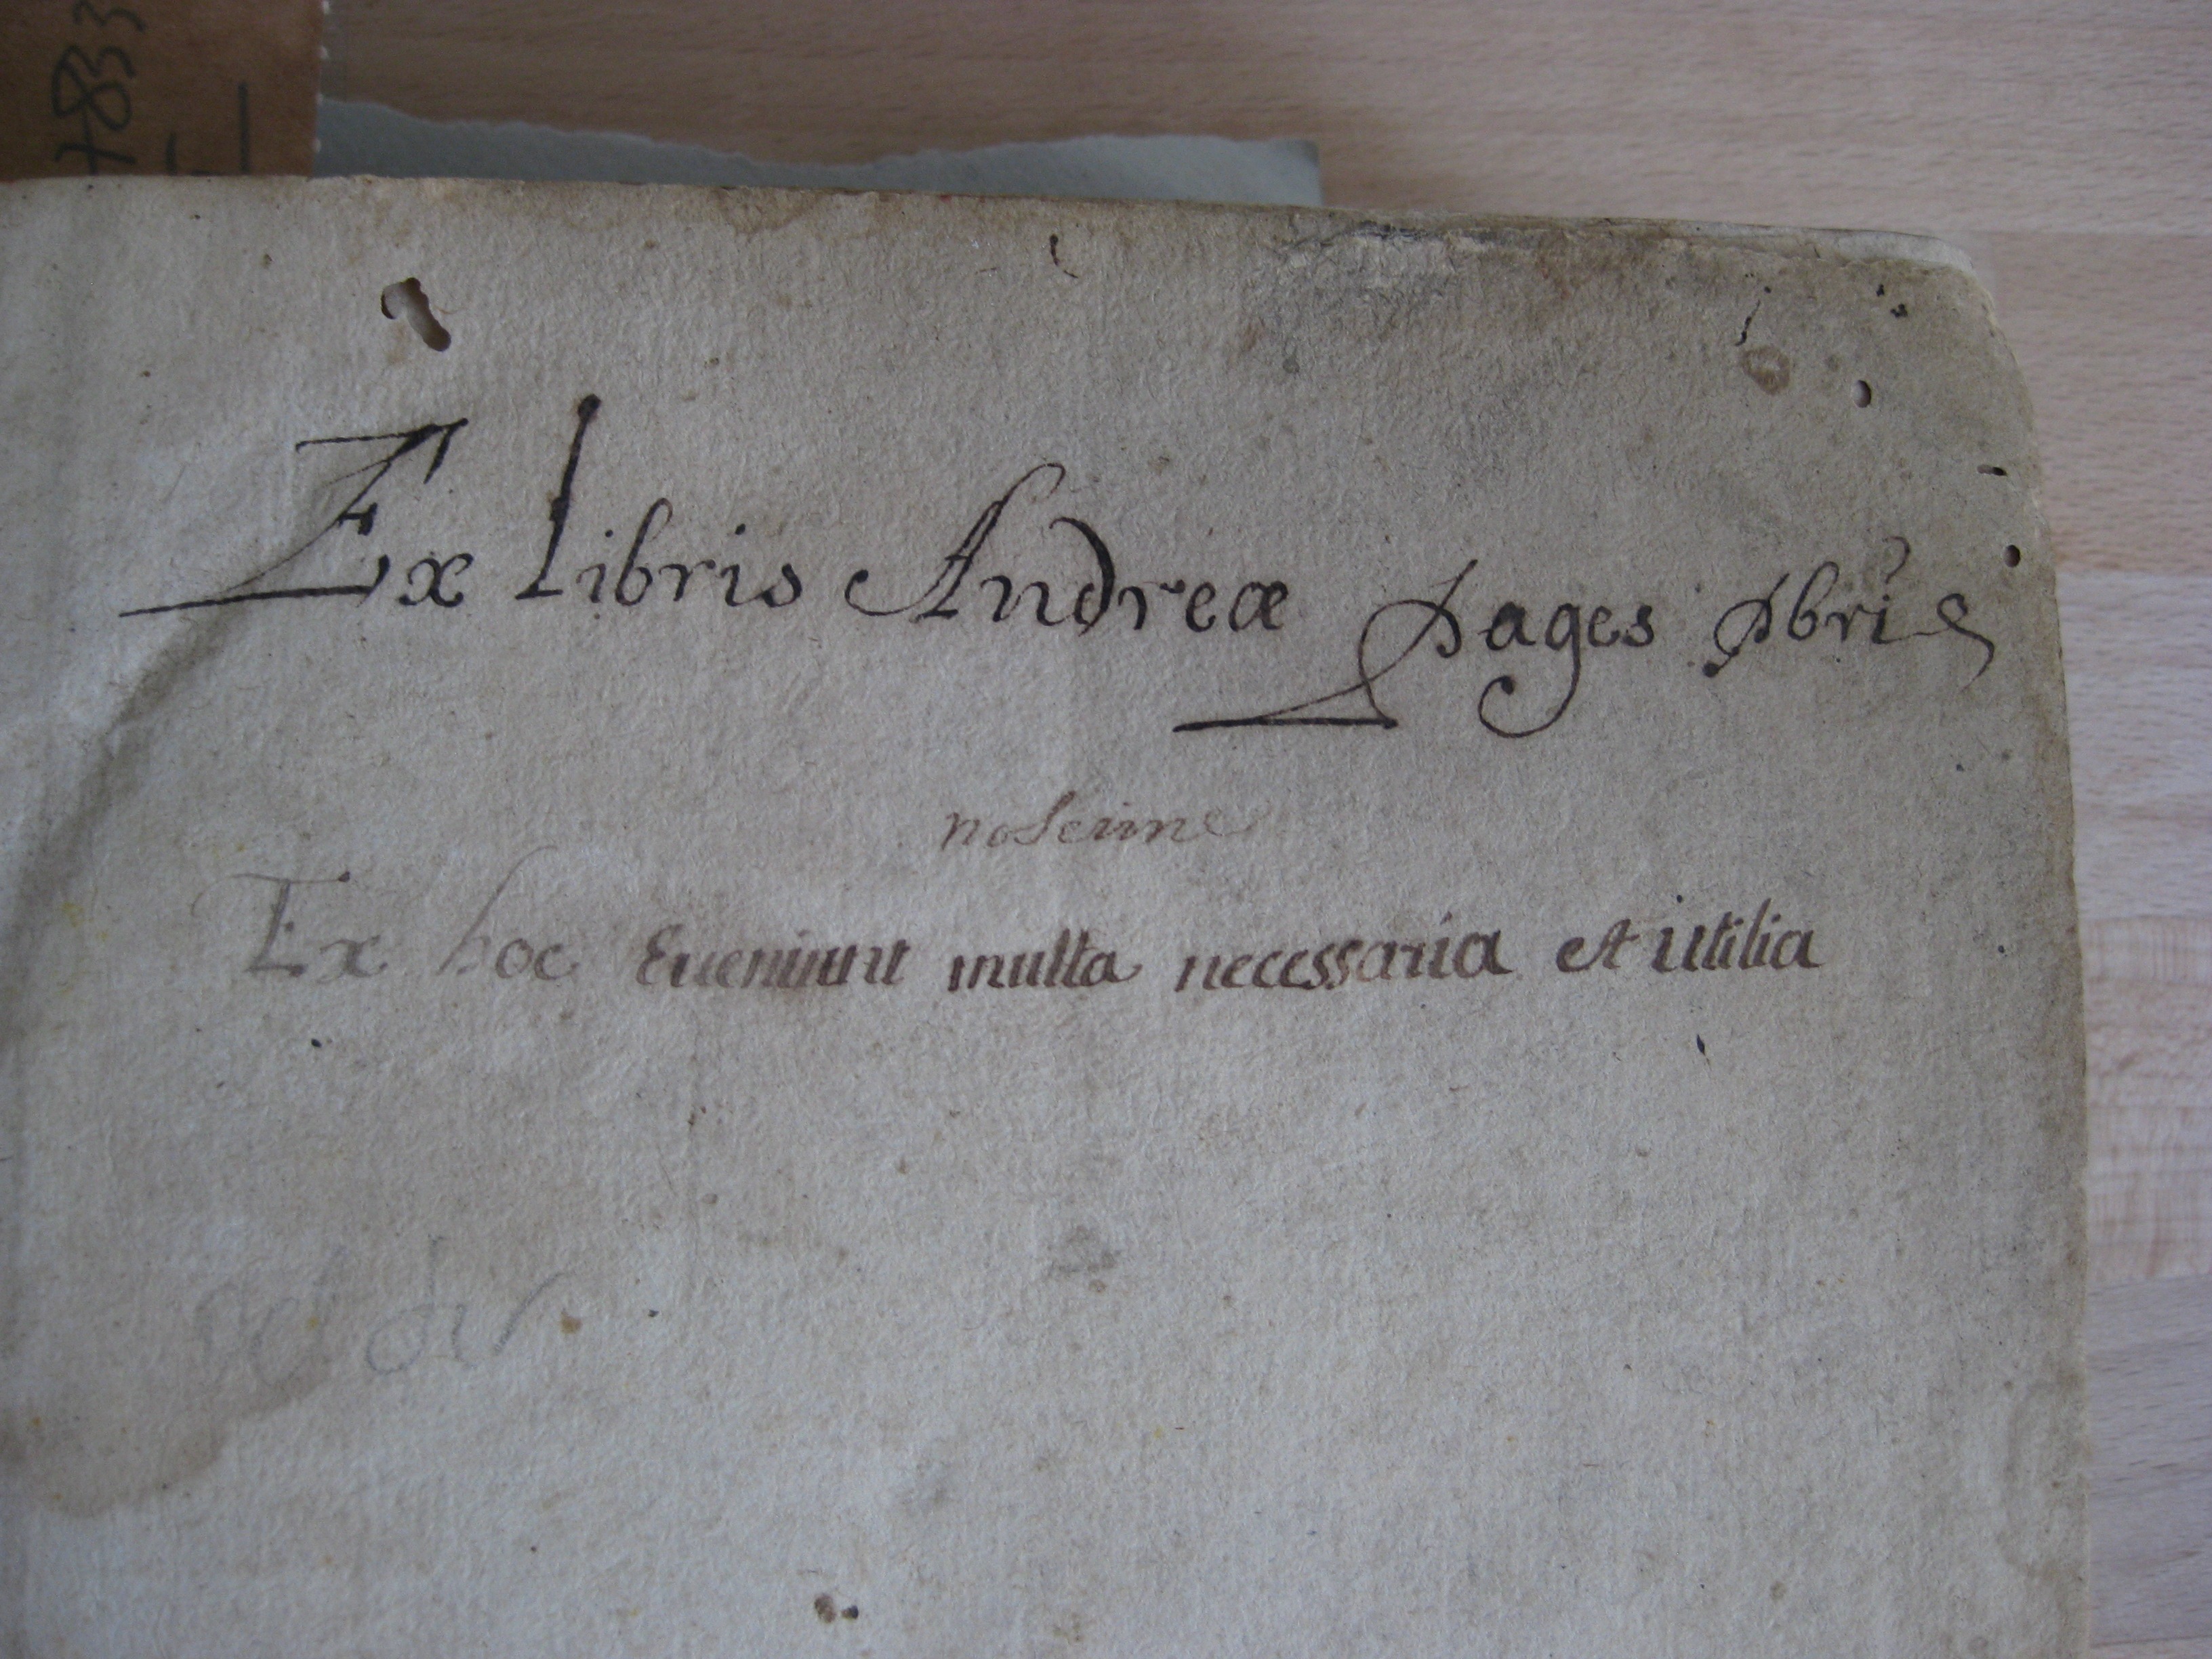 783
Ex libris Andreæ Pages Pbri
Ex hoc Eueniunt multa necessaria et utilia